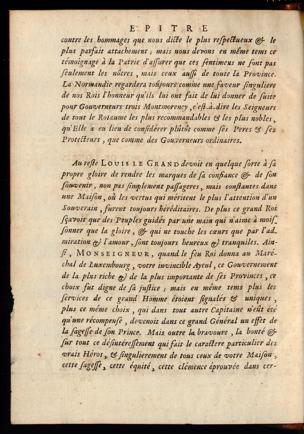 EPITRE
contre les hommages que nous dicte le plus respectueux & le
plus parfait attachement, mais nous devons en même tems ce
témoignage à la Patrie d'assurer que ces sentimens ne sont pas
seulement les nôtres, mais ceux aussi de toute la Province.
La Normandie regardera toûjours comme une faveur singuliere
de nos Rois l'honneur qu'ils lui ont fait de lui donner de suite
pour Gouverneurs trois Montmorency, c'est à dire les Seigneurs
de tout le Roïaume les plus recommandables & les plus nobles,
qu'Elle a eu lieu de considérer plûtôt comme ses Peres & ses
Protecteurs, que comme des Gouverneurs ordinaires.
Au reste LOUIS LE GRAND devoit en quelque sorte à sa
propre gloire de rendre les marques de sa confiance & de son
souvenir, non pas simplement passageres, mais constantes dans
une Maison, où les vertus qui méritent le plus l'attention d'un
Souverain, furent toûjours héréditaires. De plus ce grand Roi
sçavoit que des Peuples guidés par une main qui n'aime à mois-
sonner que la gloire, & qui ne touche les cœurs que par l'ad-
miration & l'amour, sont toûjours heureux & tranquiles. Ain-
si, MONSEIGNEUR, quand le feu Roi donna au Maré-
chal de Luxembourg, votre invincible Ayeul, ce Gouvernement
de la plus riche & de la plus importante de ses Provinces, ce
choix fut digne de sa justice; mais en même tems plus les
services de ce grand Homme étoient signalés & uniques,
plus ce même choix, qui dans tout autre Capitaine n'eût été
qu'une récompense, devenoit dans ce grand Général un effet de
la sagesse de son Prince. Mais outre la bravoure, la bonté &
sur tout ce désintéressement qui fait le caractere particulier des
vrais Héros, & singulierement de tous ceux de votre Maison,
cette sagesse, cette équité, cette clémence éprouvée dans cer-